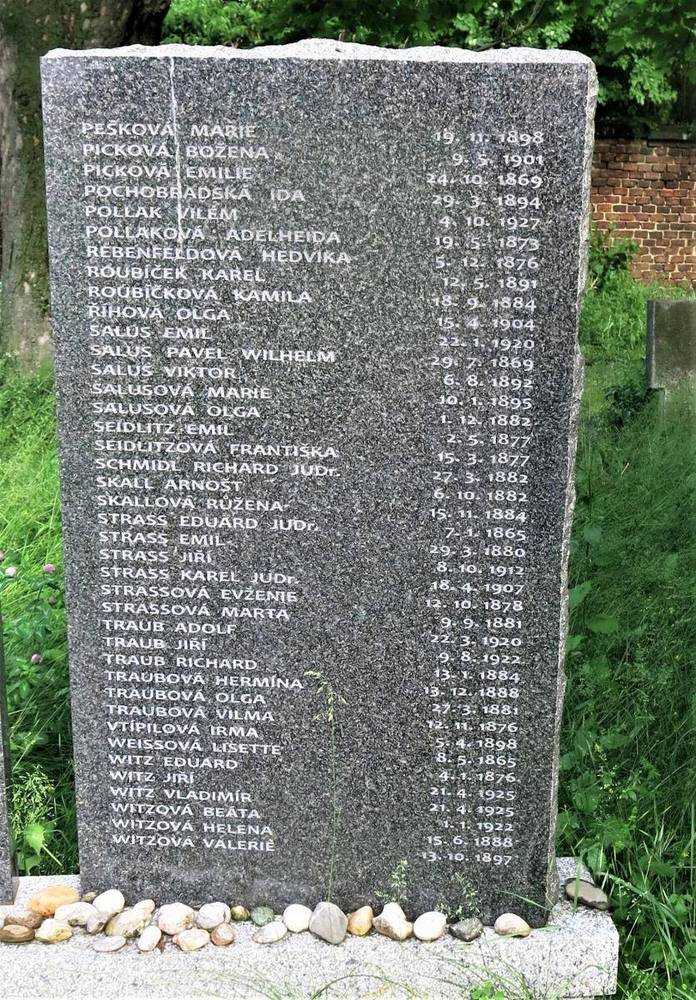 PEŠKOVÁ MARIE 19. 11. 1898
PICKOVÁ BOŽENA 9. 5. 1901
PICKOVÁ EMILIE 24. 10. 1869
POCHOBRADSKÁ IDA 29. 3. 1894
POLLAK VILÉM 4. 10. 1927
POLLAKOVÁ ADELHEIDA 19. 5. 1873
REBENFELDOVÁ HEDVIKA 5. 12. 1876
ROUBÍČEK KAREL 12. 5. 1891
ROUBÍČKOVÁ KAMILA 18. 9. 1884
ŘÍHOVÁ OLGA 15. 4. 1904
SALUS EMIL 22. 1. 1920
SALUS PAVEL WILHELM 29. 7. 1869
SALUS VIKTOR 6. 8. 1892
SALUSOVÁ MARIE 10. 1. 1895
SALUSOVÁ OLGA 1. 12. 1882
SEIDLITZ EMIL 2. 5. 1877
SEIDLITZOVÁ FRANTIŠKA 15. 3. 1877
SCHMIDL RICHARD JUDr. 27. 3. 1882
SKALL ARNOŠT 6. 10. 1882
SKALLOVÁ RŮŽENA 15. 11. 1884
STRASS EDUARD JUDr. 7. 1. 1865
STRASS EMIL 29. 3. 1880
STRASS JIŘÍ 8. 10. 1912
STRASS KAREL JUDr. 18. 4. 1907
STRASSOVÁ EVŽENIE 12. 10. 1878
STRASSOVÁ MARTA 9. 9. 1881
TRAUB ADOLF 22. 3. 1920
TRAUB JIŘÍ 9. 8. 1922
TRAUB RICHARD 13. 1. 1884
TRAUBOVÁ HERMÍNA 13. 12. 1888
TRAUBOVÁ OLGA 27. 3. 1881
TRAUBOVÁ VILMA 12. 11. 1876
VTÍPILOVÁ IRMA 5. 4. 1898
WEISSOVÁ LISETTE 8. 5. 1865
WITZ EDUARD 4. 1. 1876
WITZ JIŘÍ 21. 4. 1925
WITZ VLADIMÍR 21. 4. 1925
WITZOVÁ BEÁTA 1. 1. 1922
WITZOVÁ HELENA 15. 6. 1888
WITZOVÁ VALERIE 13. 10. 1897